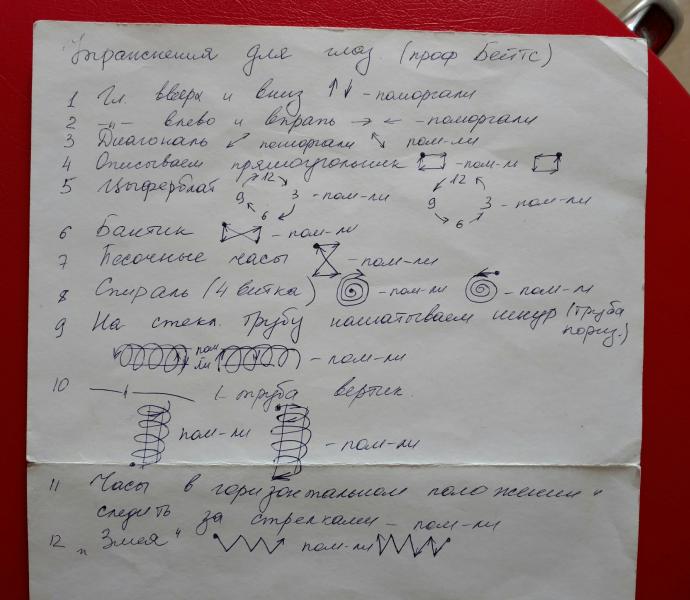 Упражнения для глаз (проф Бейтс)
1 Гл. вверх и вниз ↑↓ - поморгали
2 -„- влево и вправо → ← - поморгали
3 Диагональ ↙ поморгали ↖ пом-ли
4 Описываем прямоугольник - пом-ли
5 Цыферблат 12 3 6 9 - пом-ли 12 3 6 9 - пом-ли
6 Бантик - пом-ли
7 Песочные часы - пом-ли
8 Спираль (4 витка) - пом-ли - пом-ли
9 На стекл. трубу наматываем шнур (труба
гориз.)
пом-ли - пом-ли
10 -„- труба вертик.
пом-ли - пом-ли
11 Часы в горизонтальном положении"
следить за стрелками - пом-ли
12 „Змея" пом-ли